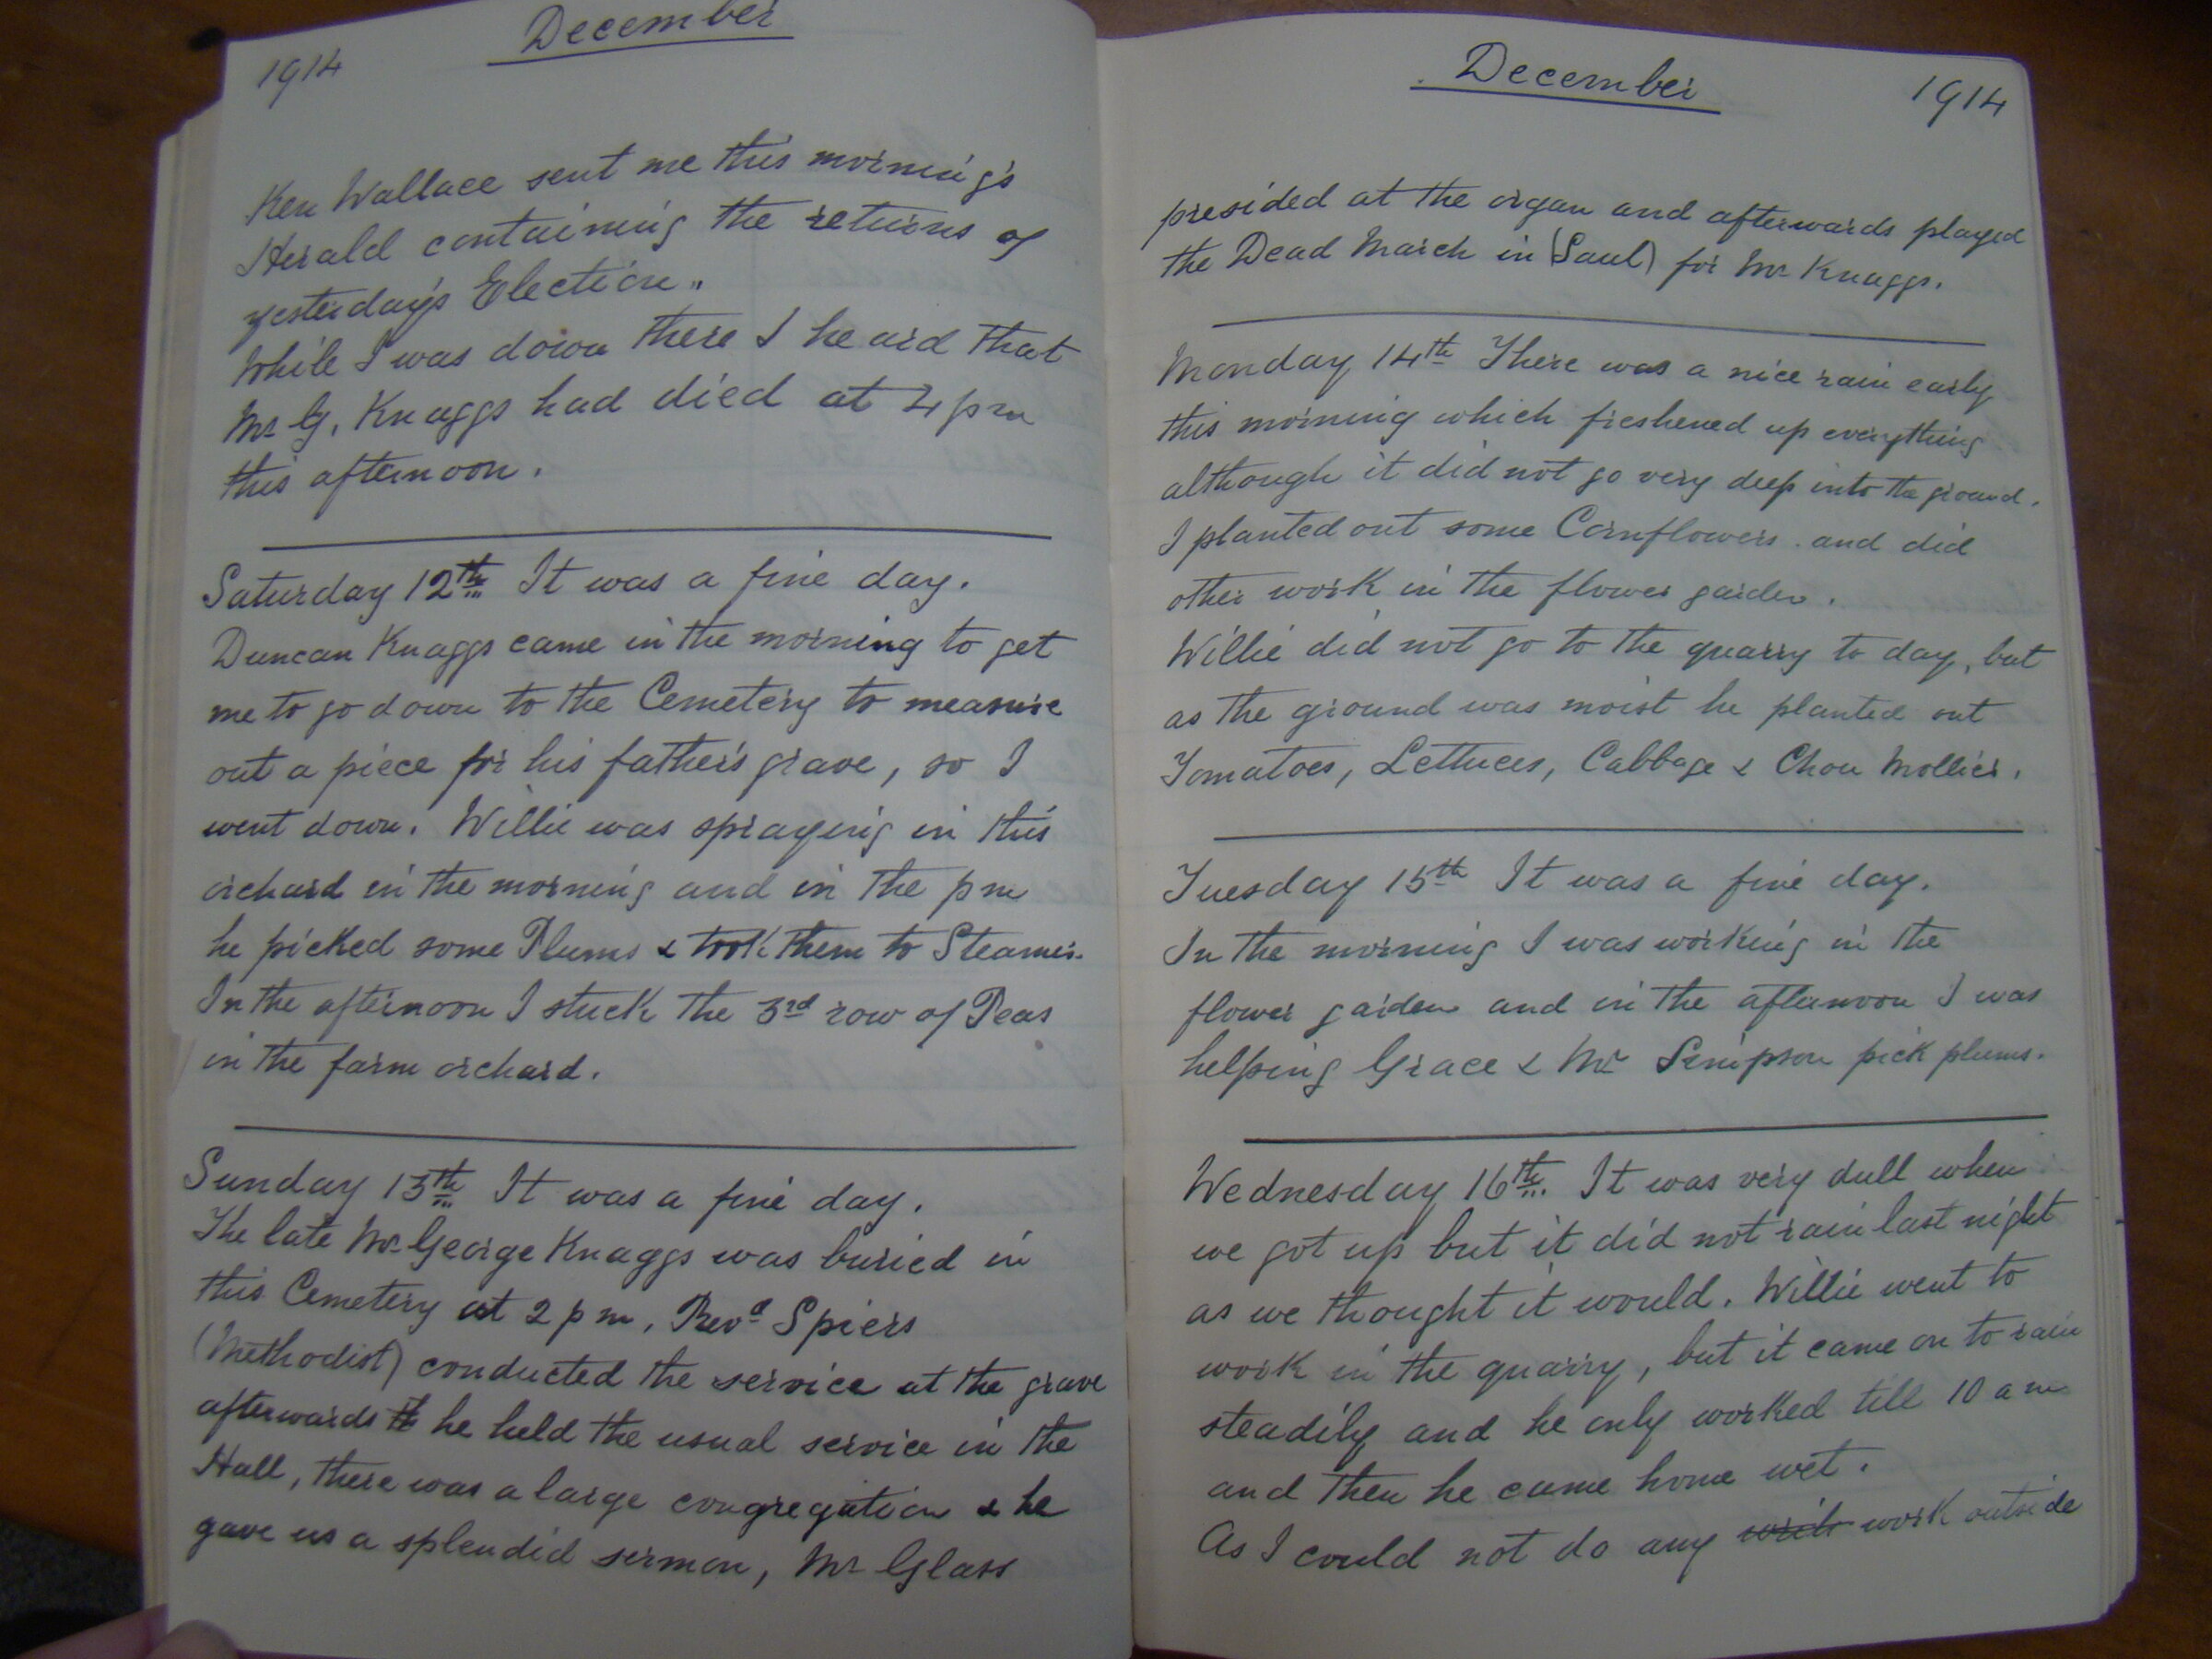 December
1914
Ken Wallace sent me this morning's
Herald containing the returns of
yesterday's Election..
While I was down there I heard that
Mr G. Knaggs had died at 4 pm
this afternoon.
Saturday 12th It was a fine day.
Duncan Knaggs came in the morning to get
me to go down to the Cemetery to measure
out a piece for his father's grave, so I
went down. Willie was spraying in this
orchard in the morning and in the pm
he picked some Plums & took them to Steamer.
In the afternoon I stuck the 3rd row of Peas
in the farm orchard.
Sunday 13th It was a fine day.
The late Mr George Knaggs was buried in
this Cemetery at 2 pm, Revd Spiers
(Methodist) conducted the service at the grave
afterwards th he held the usual service in the
Hall, there was a large congregation & he
gave us a splendid sermon, Mr Glass
December
1914
presided at the organ and afterwards played
the Dead March in (Saul) for Mr Knaggs.
Monday 14th There was a nice rain early
this morning which freshened up everything
although it did not go very deep into the ground.
I planted out some Cornflowers. and did
other work in the flower garden.
Willie did not go to the quarry to day, but
as the ground was moist he planted out
Tomatoes, Lettuces, Cabbage & Chou Mollier.
Tuesday 15th It was a fine day.
In the morning I was working in the
flower garden and in the afternoon I was
helping Grace & Mr Simpson pick plums.
Wednesday 16th. It was very dull when
we got up but it did not rain last night
as we thought it would. Willie went to
work in the quarry, but it came on to rain
steadily and he only worked till 10 am
and then he came home wet.
As I could not do any work outside